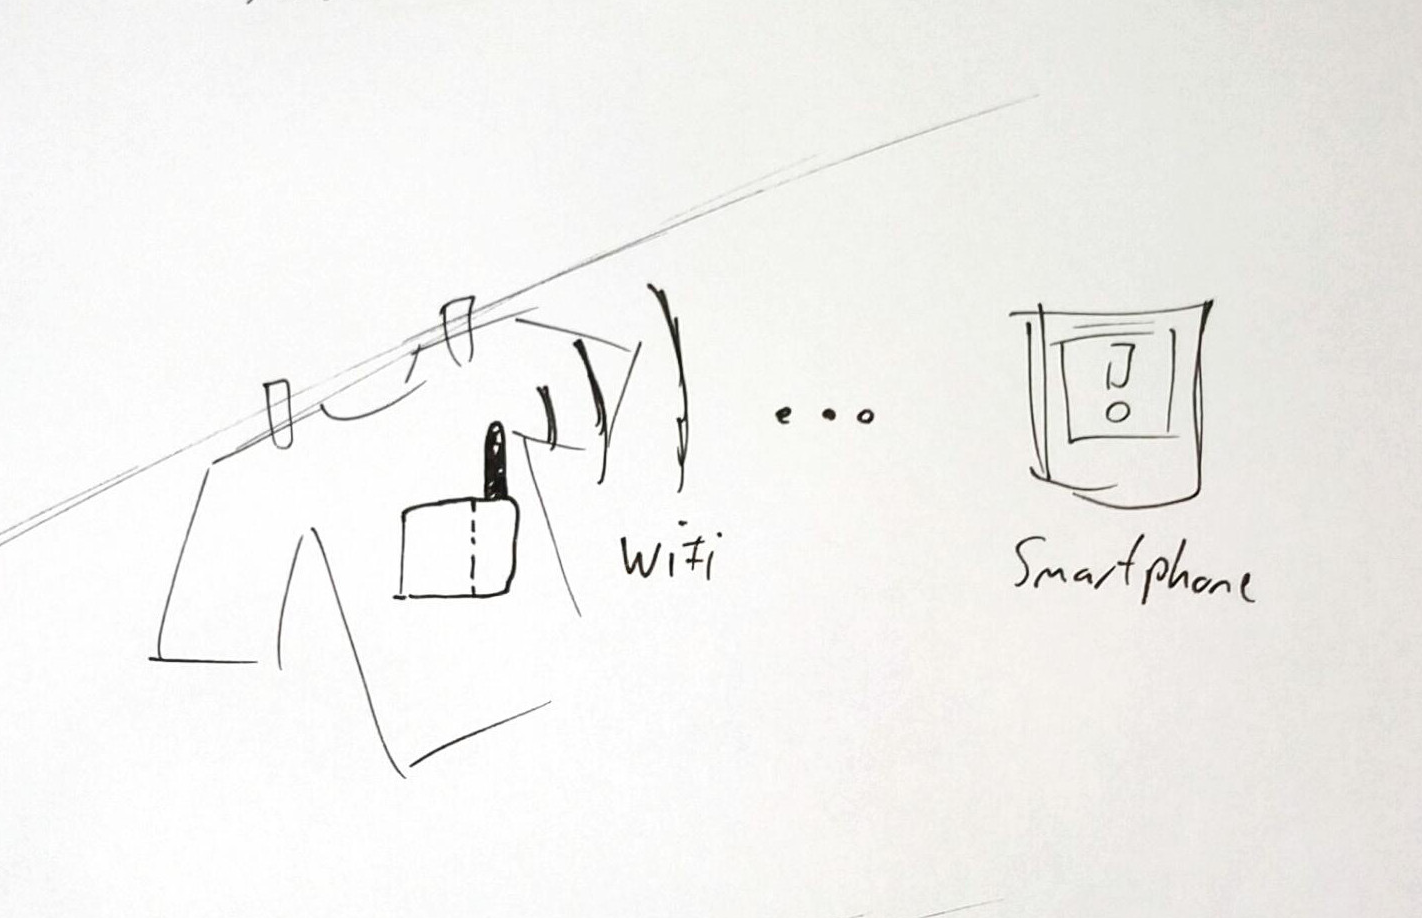 !
WiFi
Smartphone